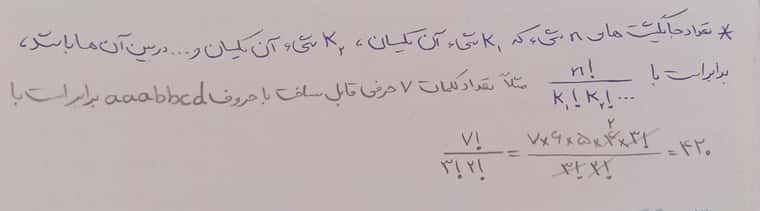 * تعداد جایگشت های n شیء که K₁ شیء آن یکسان، K₂ شیء آن یکسان و... در بین آن ها باشد،
برابر است با n! / K₁! K₂! ... مثلاً تعداد کلمات ۷ حرفی قابل ساخت با حروف aaabbcd برابر است با
۷! / ۳! ۲! = ۷×۶×۵×۴×۳! / ۳! ۲! = ۴۲۰